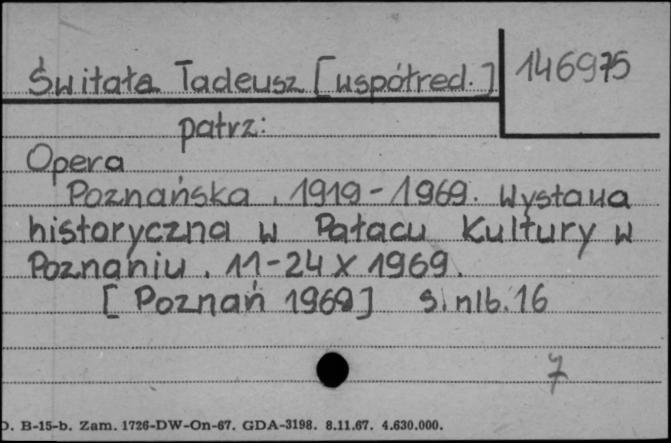 Świtała Tadeusz [współred.] 146975
patrz:
Opera
Poznańska. 1919-1969. Wystawa
historyczna w Pałacu Kultury w
Poznaniu. 11-24 X 1969.
[Poznań 1969] s. nlb. 16
7
D. B-15-b. Zam. 1726-DW-On-67. GDA-3198. 8.11.67. 4.630.000.